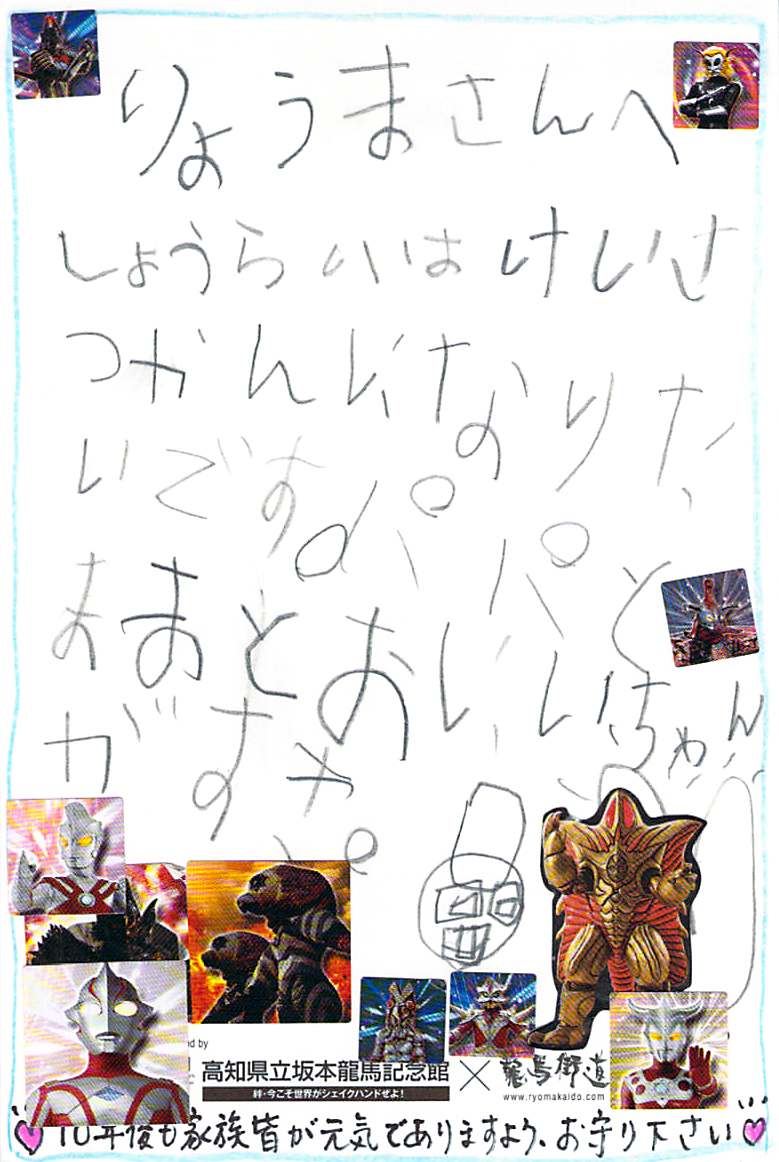 りょうまさんへ
しょうらいはけいさ
つかんになりた
いです パパと
ままとおじいちゃん
がすき
by
高知県立坂本龍馬記念館×龍馬街道
絆・今こそ世界がシェイクハンドせよ!
www.ryomakaido.com
10年後も家族皆が元気でありますよう、お守り下さい